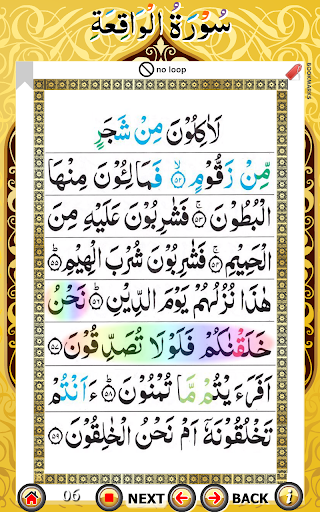 سُوْرَةُ الْوَاقِعَةِ
no loop
BOOKMARKS
لَاٰكِلُوْنَ مِنْ شَجَرٍ
مِّنْ زَقُّوْمٍ ۙ﴿۵۲﴾ فَمَالِـُٔوْنَ مِنْهَا
الْبُطُوْنَ ۚ﴿۵۳﴾ فَشٰرِبُوْنَ عَلَيْهِ مِنَ
الْحَمِيْمِ ۚ﴿۵۴﴾ فَشٰرِبُوْنَ شُرْبَ الْهِيْمِ ؕ﴿۵۵﴾
هٰذَا نُزُلُهُمْ يَوْمَ الدِّيْنِ ؕ﴿۵۶﴾ نَحْنُ
خَلَقْنٰكُمْ فَلَوْلَا تُصَدِّقُوْنَ ﴿۵۷﴾
اَفَرَءَيْتُمْ مَّا تُمْنُوْنَ ؕ﴿۵۸﴾ ءَاَنْتُمْ
تَخْلُقُوْنَهٗۤ اَمْ نَحْنُ الْخٰلِقُوْنَ ﴿۵۹﴾
06 NEXT BACK i